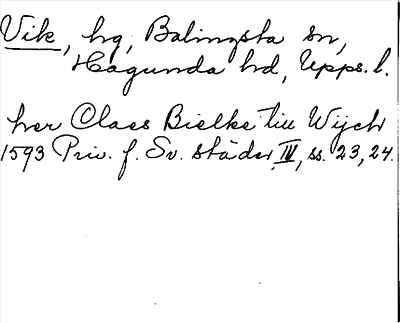 Vik, hg, Balingsta sn,
Hagunda hd, Upps. l.
her Claes Bielke till Wijch
1593 Priv. f. Sv. städer IV, ss. 23, 24.